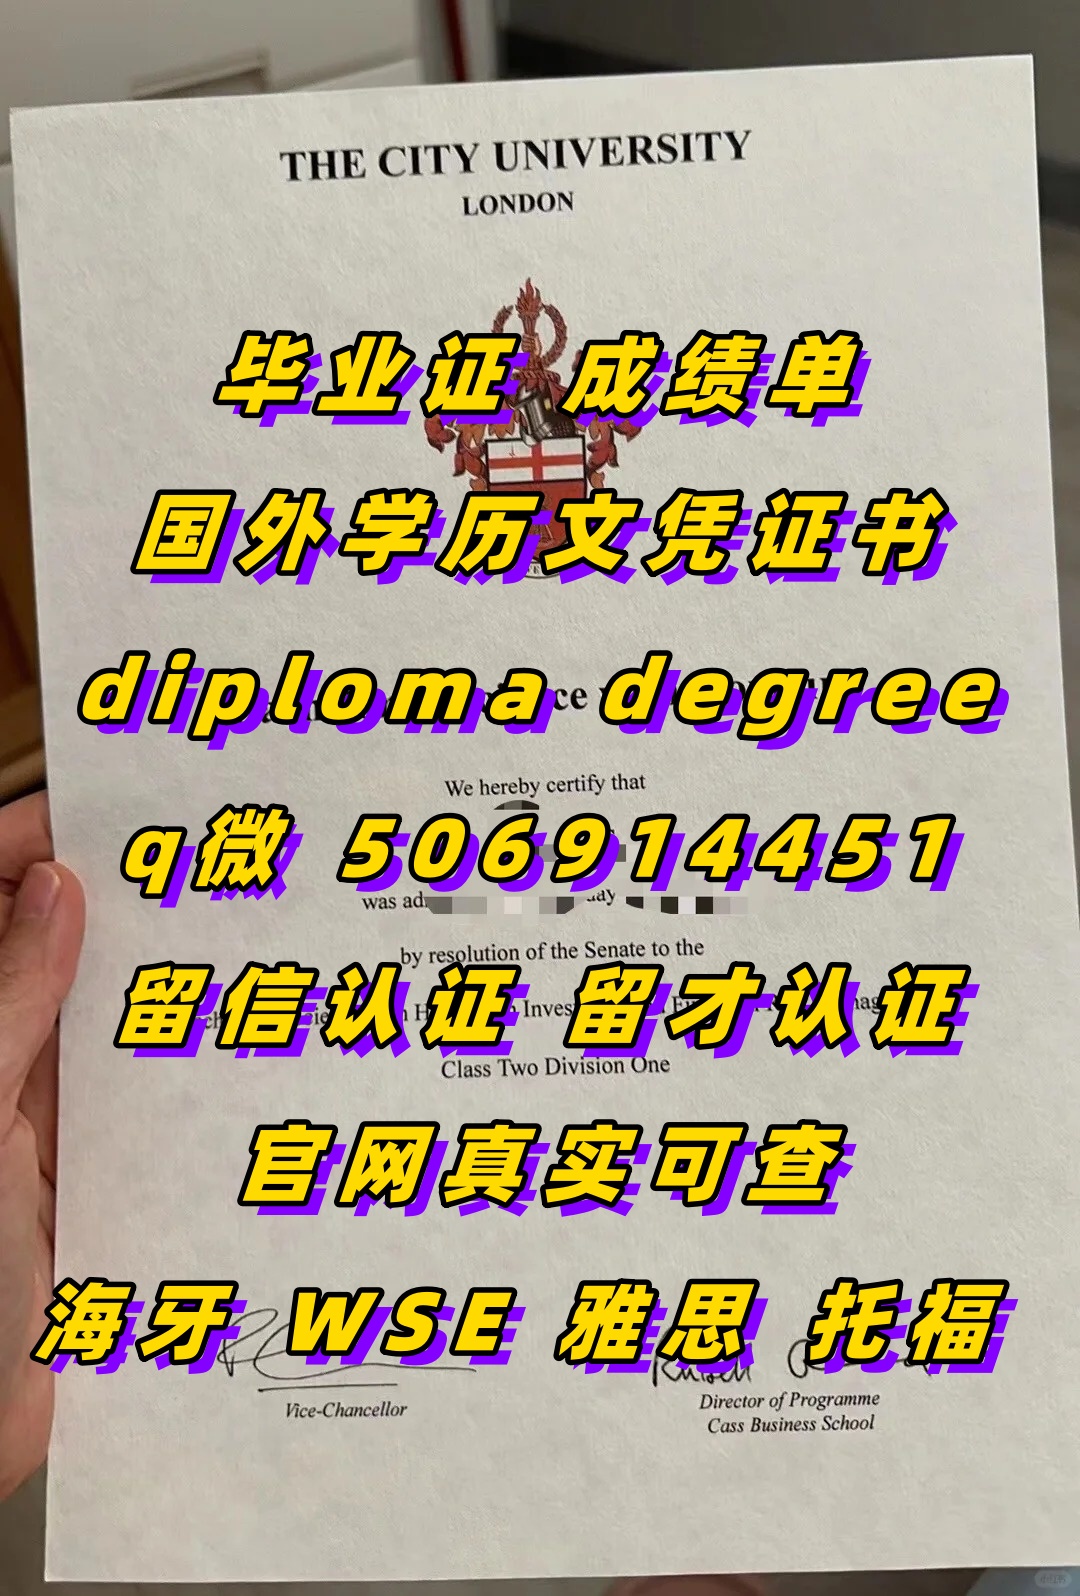 THE CITY UNIVERSITY
LONDON
毕业证 成绩单
国外学历文凭证书
diploma degree
We hereby certify that
q微 506914451
was ad
by resolution of the Senate to the
留信认证 留才认证
Class Two Division One
官网真实可查
海牙 WSE 雅思 托福
Vice-Chancellor
Director of Programme
Cass Business School